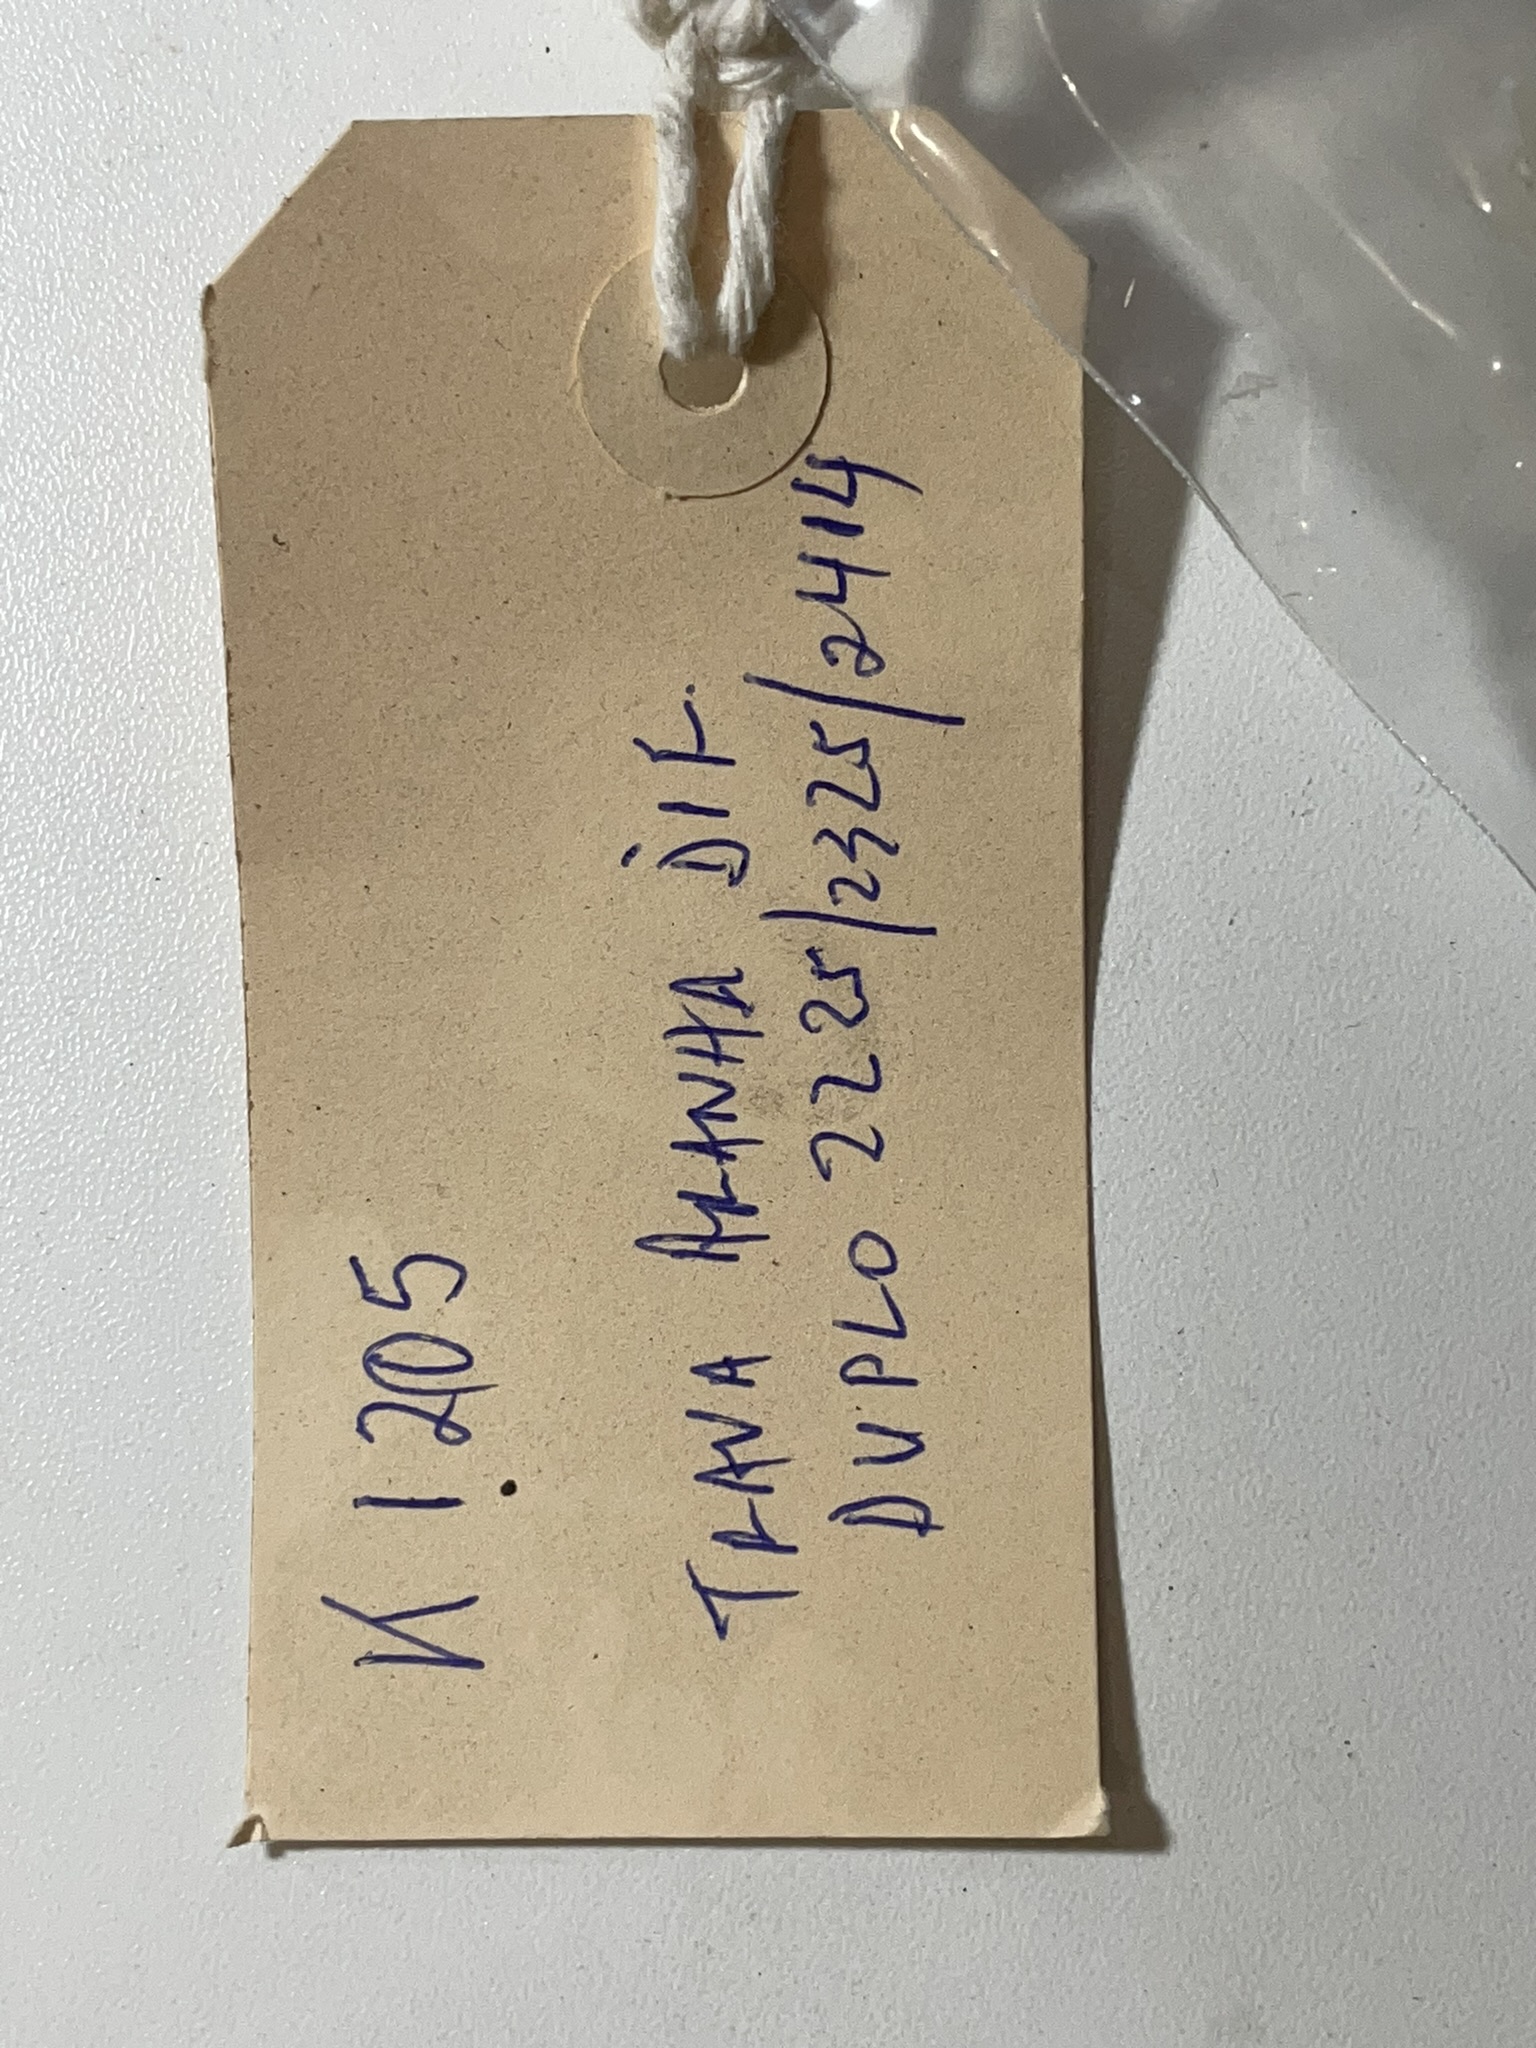 K 1.205
TRAVA ARANHA DIR.
DUPLO 2225/2325/2414